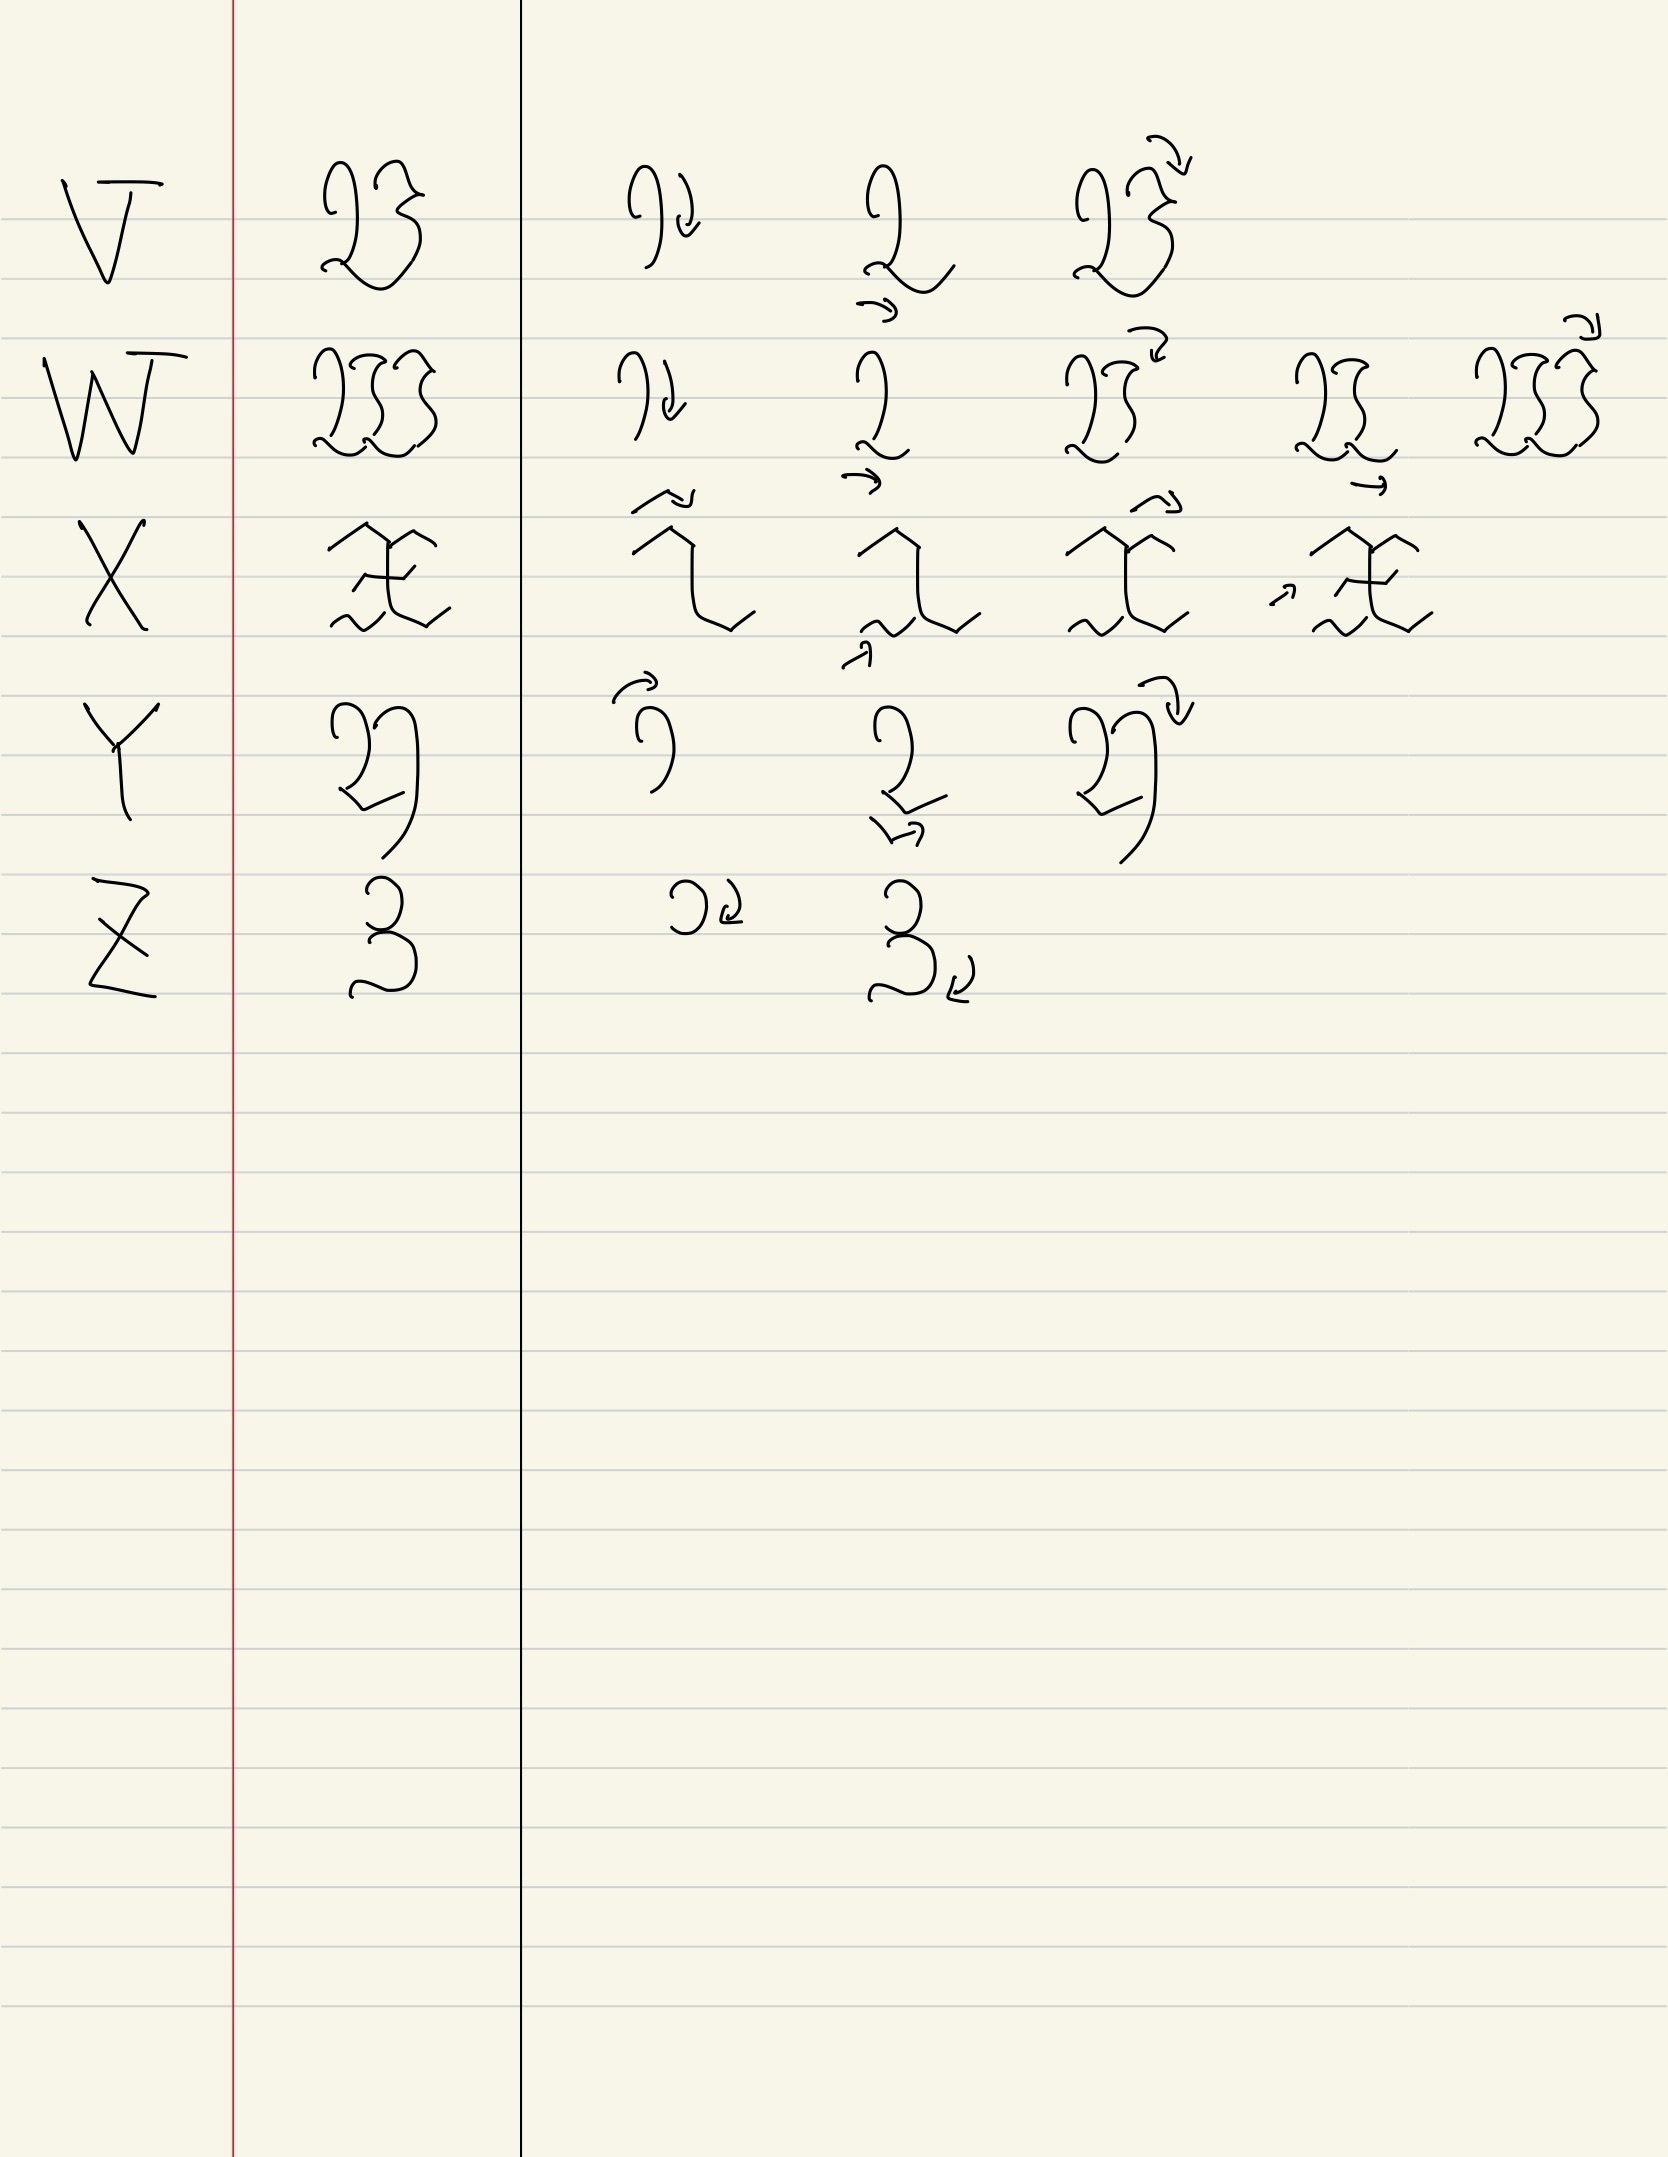 V 𝔙
W 𝔚
X 𝔛
Y 𝔜
Z ℨ